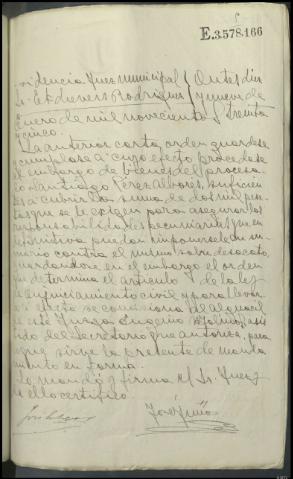 5
E.3.578.166
Providencia Juez municipal
Sr. Estevers Rodriguez
Ontes diez
y nueve de
Enero de mil novecientos treinta
y cinco.
La anterior carta orden guardese
y cumplase a cuyo efecto procedase
al embargo de bienes del procesa
do Santiago Perez Alvores, suficien
tes a cubrir la suma de dos mil pe
setas que se le exigen para asegurar las
responsabilidades pecuniarias que en
definitiva puedan imponersele en su
mario contra el mismo sobre desacato,
guardandose en el embargo el orden
que determina el articulo de la ley
de Enjuiciamiento civil y para llevar
a efecto se comisiona al alguacil
de este Juzgado Eugenio asis
tido del Secretario que autoriza, para
que sirve la presente de manda
miento en forma.
Lo mandó y firma el Sr. Juez,
de ello certifico.
José